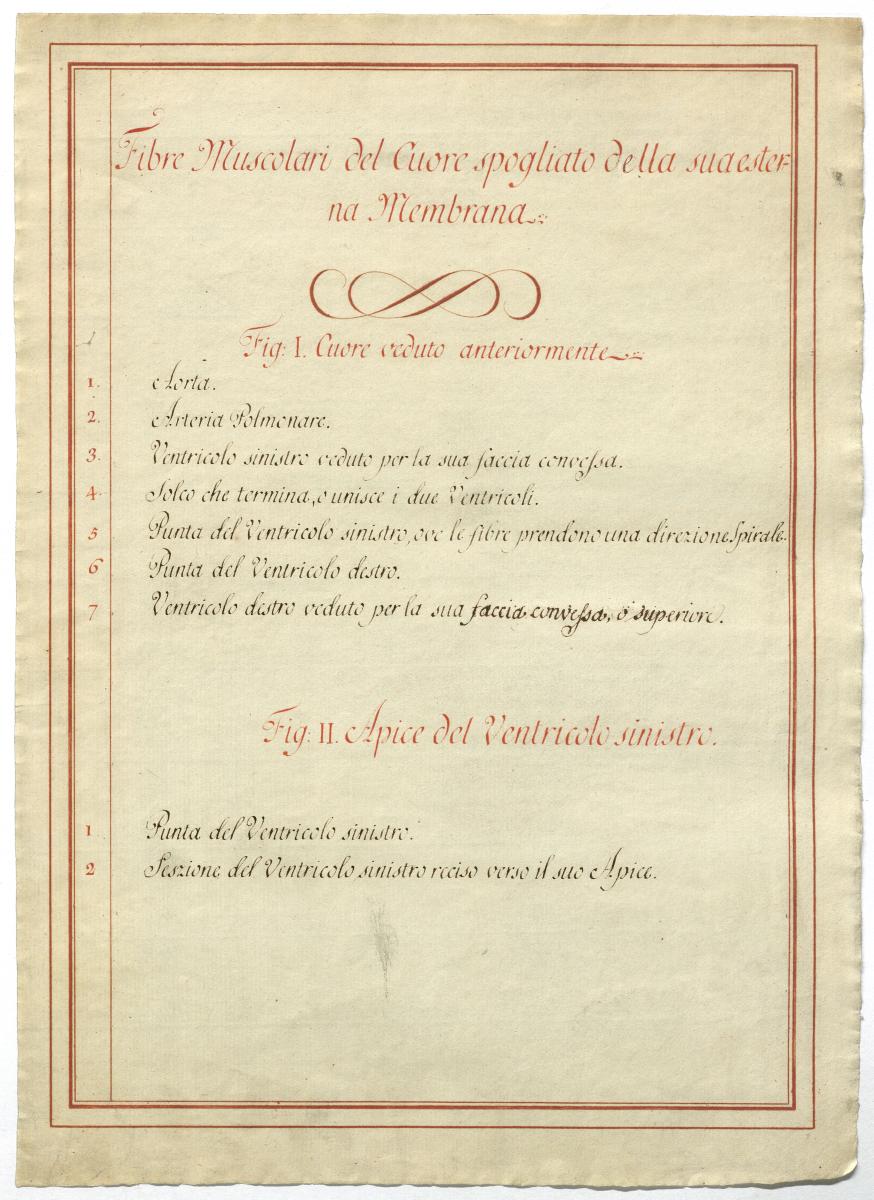 Fibre Muscolari del Cuore spogliato della sua ester-
na Membrana
1
Fig: I. Cuore veduto anteriormente
1. Aorta.
2. Arteria Polmonare.
3. Ventricolo sinistro veduto per la sua faccia convessa.
4. Solco che termina, o unisce i due Ventricoli.
5 Punta del Ventricolo sinistro, ove le fibre prendono una direzione Spirale.
6 Punta del Ventricolo destro.
7 Ventricolo destro veduto per la sua faccia convessa, o superiore.
Fig: II. Apice del Ventricolo sinistro.
1 Punta del Ventricolo sinistro.
2 Seszione del Ventricolo sinistro reciso verso il suo Apice.